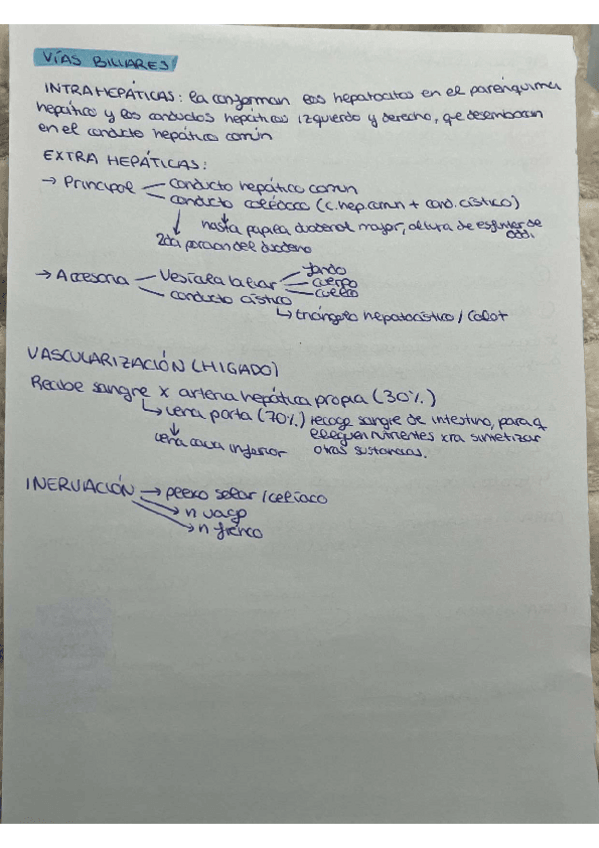 VÍAS BILIARES
INTRAHEPÁTICAS: la conforman los hepatocitos en el parénquima
hepático y los conductos hepáticos izquierdo y derecho, que desembocan
en el conducto hepático común
EXTRA HEPÁTICAS:
→ Principal — conducto hepático común
conducto colédoco (c.hep.comun + cond.cístico)
↓ hasta papila duodenal mayor, altura de esfínter de
Oddi.
2da porcion del duodeno
→ Accesoria — Vesícula biliar — fondo
cuerpo
cuello
conducto cístico
↳ triángulo hepatocístico / Calot
VASCULARIZACIÓN (HIGADO)
Recibe sangre x arteria hepática propia (30%)
↳ vena porta (70%) recoge sangre de intestino, para q
lleguen nutrientes xra sintetizar
↓
vena cava inferior otras sustancias.
INERVACIÓN → plexo solar / celíaco
→ n vago
→ n frénico